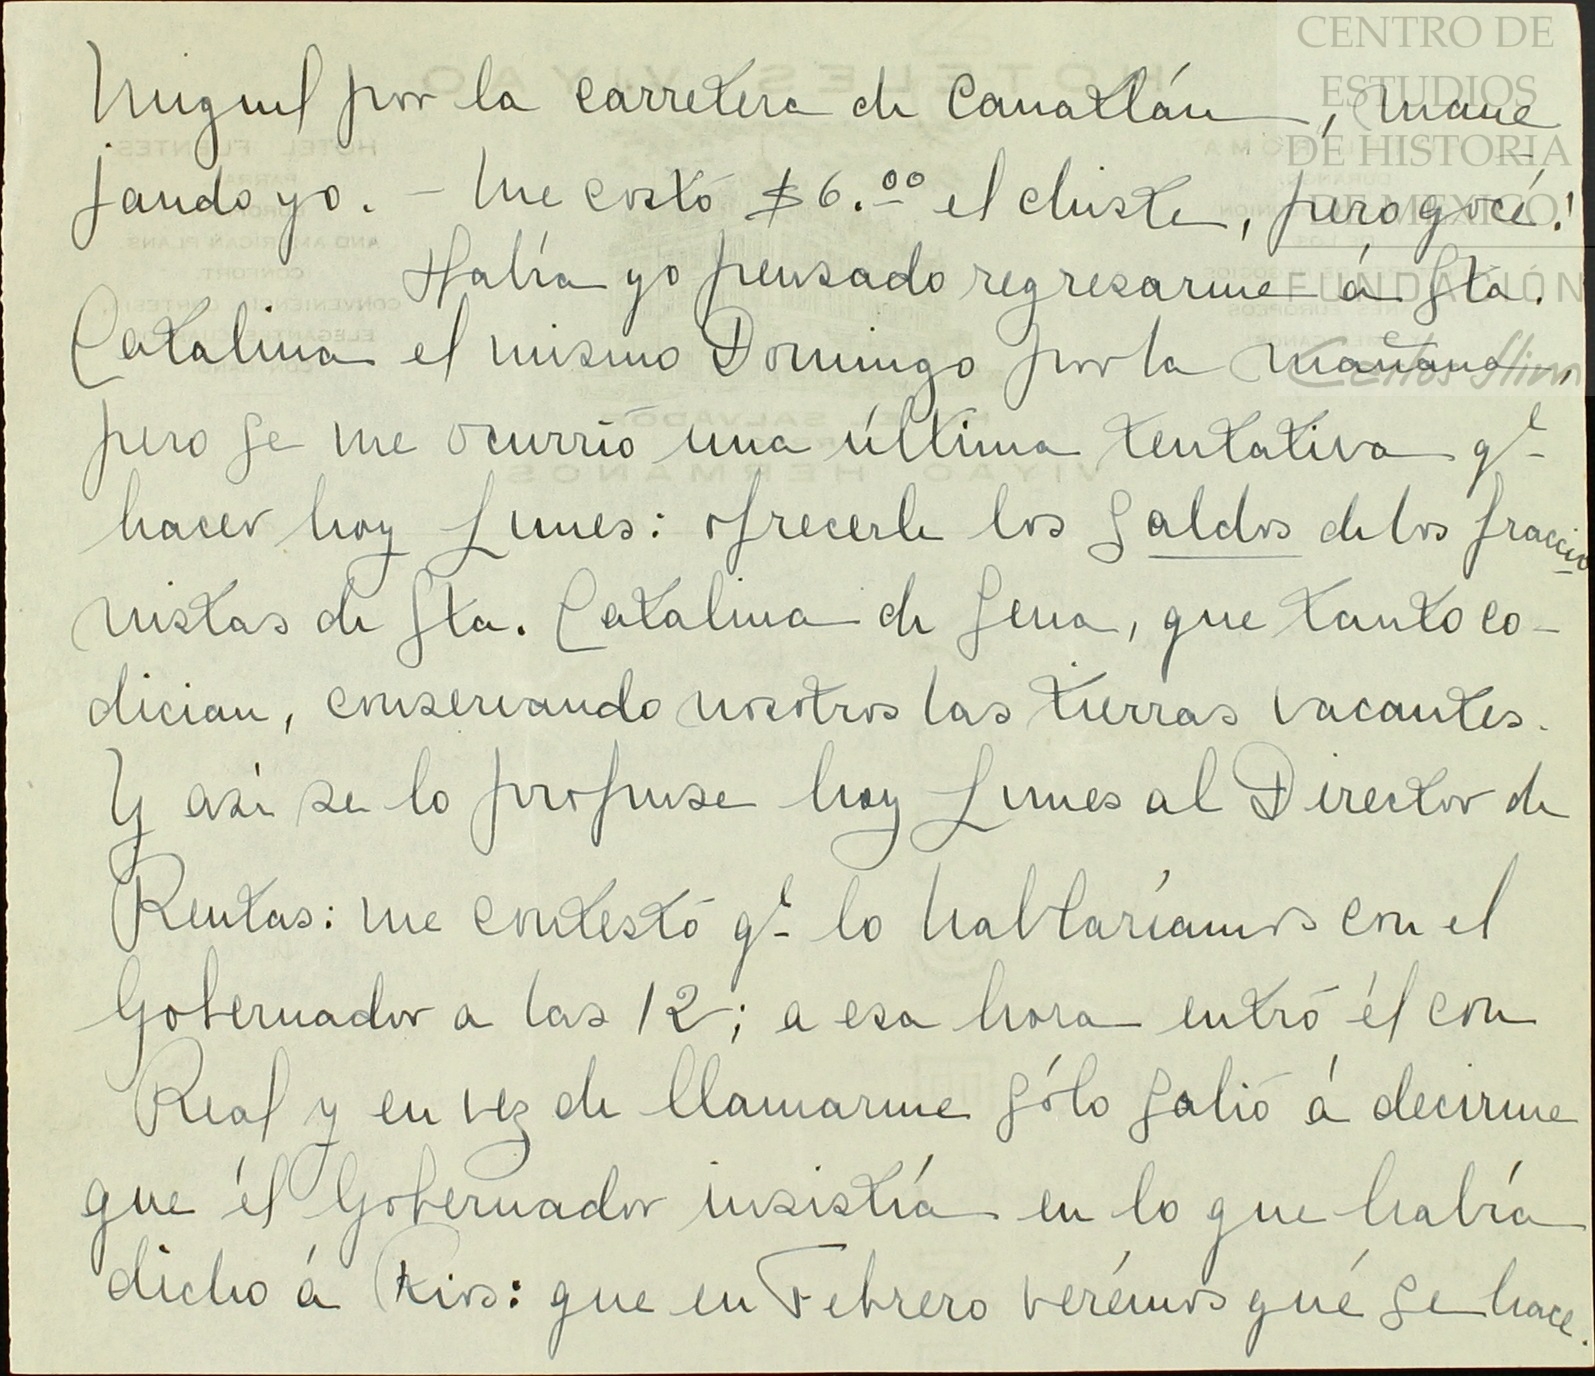 Miguel por la carretera de Canatlán, mane
jando yo. - Me costó $6.00 el chiste, pero gocé!
Había yo pensado regresarme á Sta.
Catalina el mismo Domingo por la mañana,
pero se me ocurrió una última tentativa qe
hacer hoy Lunes: ofrecerle los saldos de los fraccio
nistas de Sta. Catalina de Sena, que tanto co-
dician, conservando nosotros las tierras vacantes.
Y así se lo propuse hoy Lunes al Director de
Rentas: me contestó qe lo hablaríamos con el
Gobernador a las 12; a esa hora entró él con
Real y en vez de llamarme sólo salió á decirme
que él Gobernador insistía en lo que había
dicho á Rios: que en Febrero verémos qué se hace.
CENTRO DE
ESTUDIOS
DE HISTORIA
DE MEXICO
FUNDACIÓN
Carlos Slim